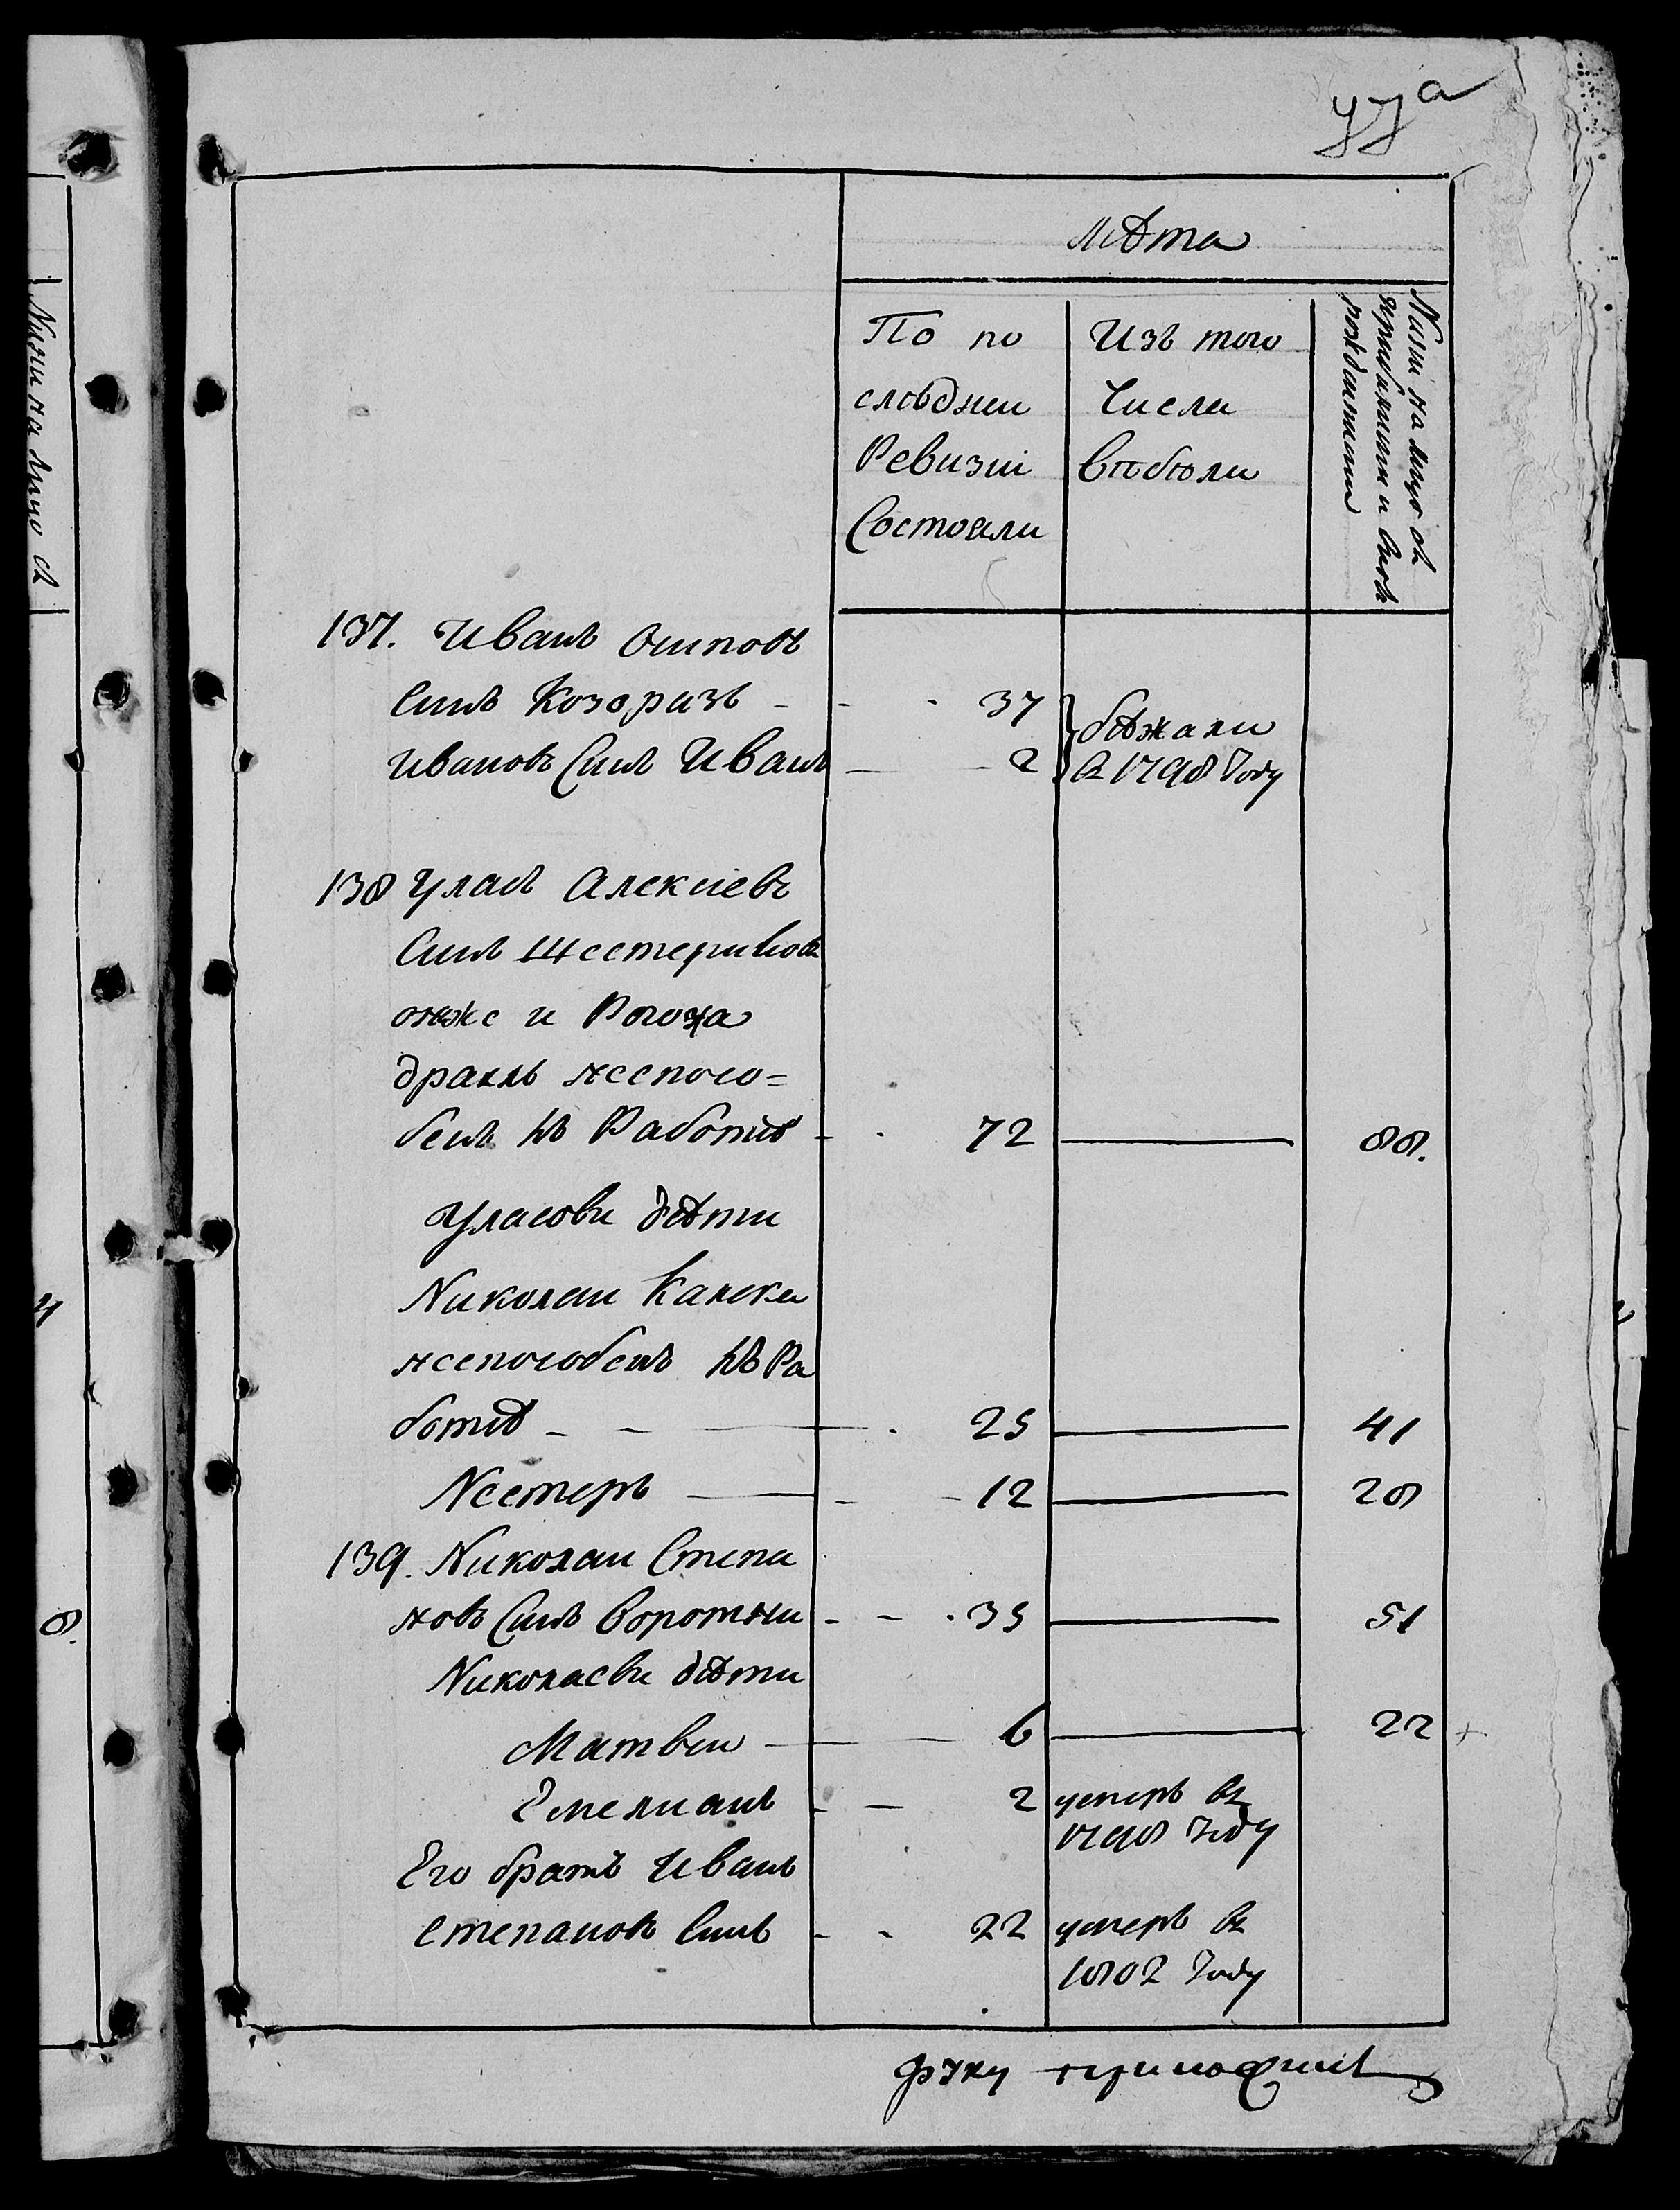 лѣта
По по
слѣдней
Ревизіи
Состояли
Изъ того
Числа
выбыли
Ныне на лицо съ
прибылыми и вновь
рожденными
137. Иванъ Осиповъ
Синъ Козоразъ 37
бѣжали
Ивановъ Синъ Иванъ 2
въ 1798 Году
138 Уласъ Алексіевъ
Синъ Шестериковъ
онже и Рогоза
дряхлъ неспосо=
бенъ къ Работѣ 72 88.
Уласови дѣти
Николай Калека
неспособенъ къ Ра
ботѣ 25 41
Нестеръ 12 28
139. Николай Степа
новъ Синъ Воротни 35 51
Николаеви дѣти
Матвей 6 22
Емелианъ 2 умеръ въ
1798 Году
Его братъ Иванъ
Степановъ Синъ 22 умеръ въ
1802 Году
руку
Ныни на лицо съ